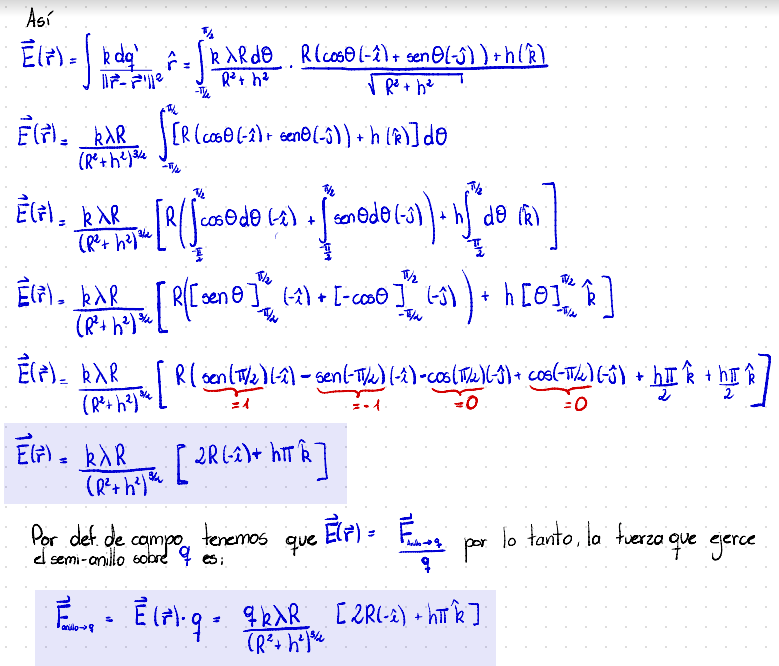 Así
E⃗(r⃗) = ∫ k dq' / ||r⃗ - r⃗'||² r̂ = ∫_{-π/2}^{π/2} k λ R dθ / R² + h² · R(cosθ(-î) + senθ(-ĵ)) + h(k̂) / √R² + h²
E⃗(r⃗) = kλR / (R² + h²)^{3/2} ∫_{-π/2}^{π/2} [R(cosθ(-î) + senθ(-ĵ)) + h(k̂)] dθ
E⃗(r⃗) = kλR / (R² + h²)^{3/2} [R(∫_{-π/2}^{π/2} cosθ dθ (-î) + ∫_{-π/2}^{π/2} senθ dθ (-ĵ)) + h ∫_{-π/2}^{π/2} dθ (k̂)]
E⃗(r⃗) = kλR / (R² + h²)^{3/2} [R([senθ]_{-π/2}^{π/2} (-î) + [-cosθ]_{-π/2}^{π/2} (-ĵ)) + h[θ]_{-π/2}^{π/2} k̂]
E⃗(r⃗) = kλR / (R² + h²)^{3/2} [R(sen(π/2)(-î) - sen(-π/2)(-î) - cos(π/2)(-ĵ) + cos(-π/2)(-ĵ) + hπ/2 k̂ + hπ/2 k̂]
=1 =-1 =0 =0
E⃗(r⃗) = kλR / (R² + h²)^{3/2} [2R(-î) + hπ k̂]
Por def. de campo tenemos que E⃗(r⃗) = F⃗_{anillo→q} / q por lo tanto, la fuerza que ejerce
el semi-anillo sobre q es:
F⃗_{anillo→q} = E⃗(r⃗)·q = qkλR / (R² + h²)^{3/2} [2R(-î) + hπ k̂]